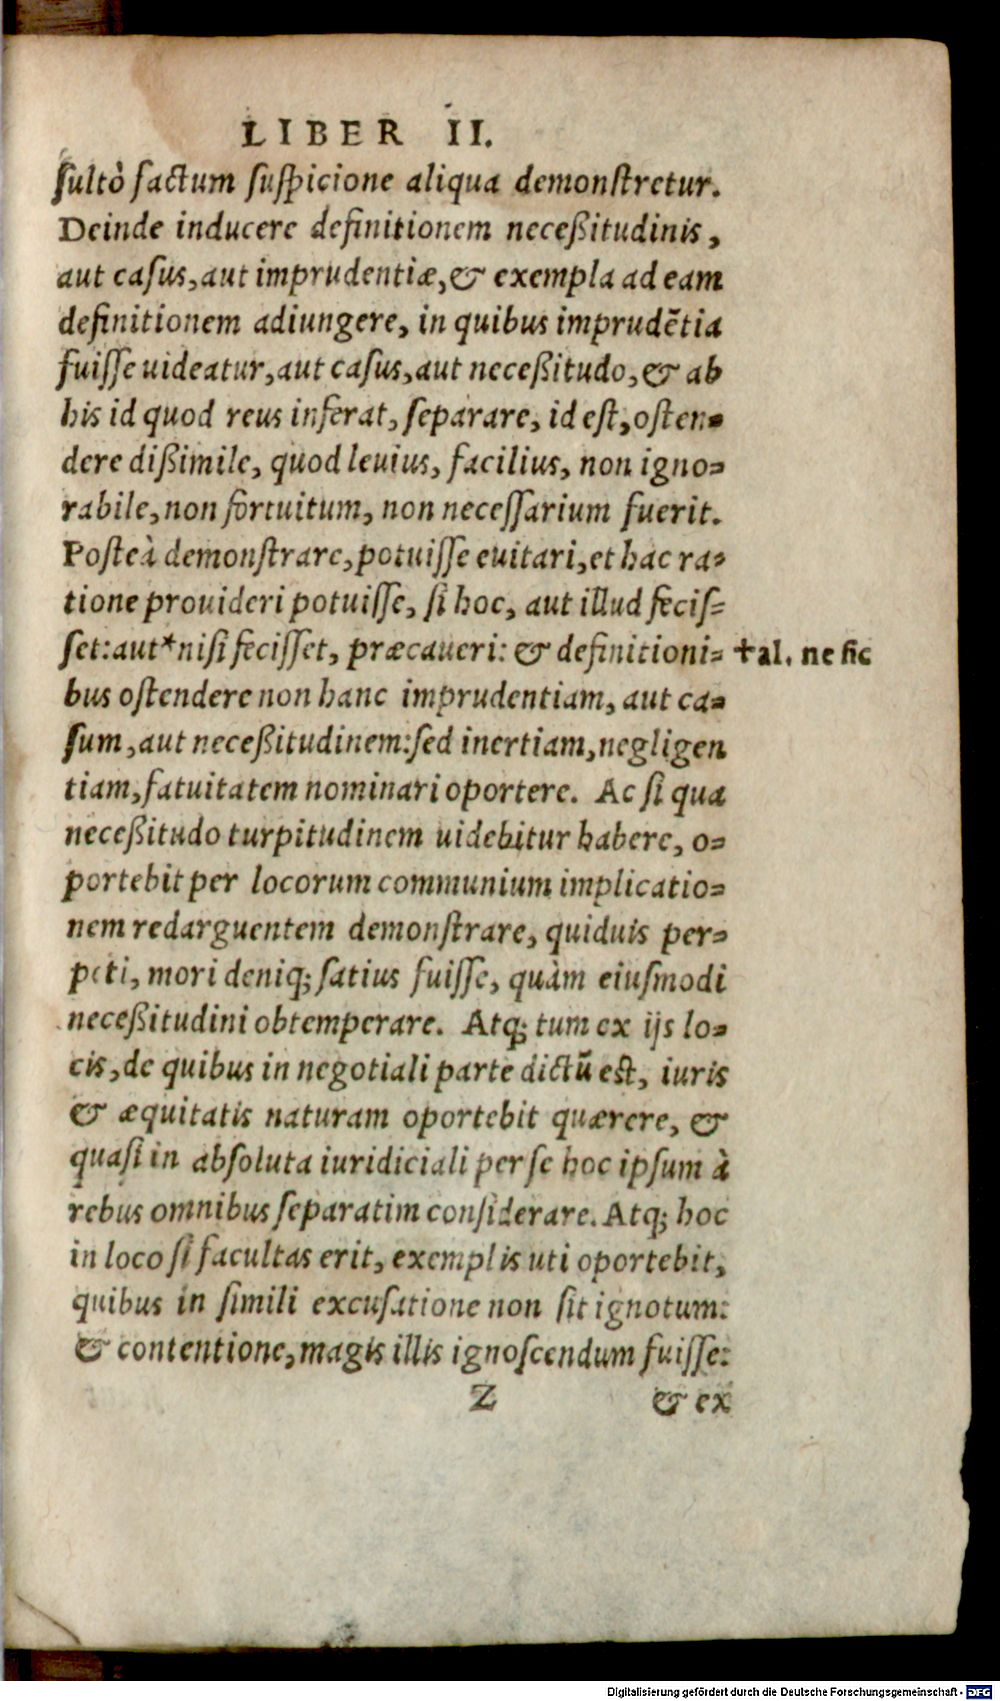 LIBER II.
sultò factum suspicione aliqua demonstretur.
Deinde inducere definitionem neceßitudinis,
aut casus, aut imprudentiæ, & exempla ad eam
definitionem adiungere, in quibus imprudẽtia
fuisse uideatur, aut casus, aut neceßitudo, & ab
his id quod reus inferat, separare, id est, osten-
dere dißimile, quod leuius, facilius, non igno-
rabile, non fortuitum, non necessarium fuerit.
Posteà demonstrare, potuisse euitari, et hac ra-
tione prouideri potuisse, si hoc, aut illud fecis-
set: aut *nisi fecisset, præcaueri: & definitioni- ✝al. ne sic
bus ostendere non hanc imprudentiam, aut ca-
sum, aut neceßitudinem: sed inertiam, negligen
tiam, fatuitatem nominari oportere. Ac si qua
neceßitudo turpitudinem uidebitur habere, o-
portebit per locorum communium implicatio-
nem redarguentem demonstrare, quiduis per-
peti, mori deniq; satius fuisse, quàm eiusmodi
neceßitudini obtemperare. Atq; tum ex ijs lo-
cis, de quibus in negotiali parte dictũ est, iuris
& æquitatis naturam oportebit quærere, &
quasi in absoluta iuridiciali per se hoc ipsum à
rebus omnibus separatim considerare. Atq; hoc
in loco si facultas erit, exemplis uti oportebit,
quibus in simili excusatione non sit ignotum:
& contentione, magis illis ignoscendum fuisse:
Z & ex
Digitalisierung gefördert durch die Deutsche Forschungsgemeinschaft - DFG